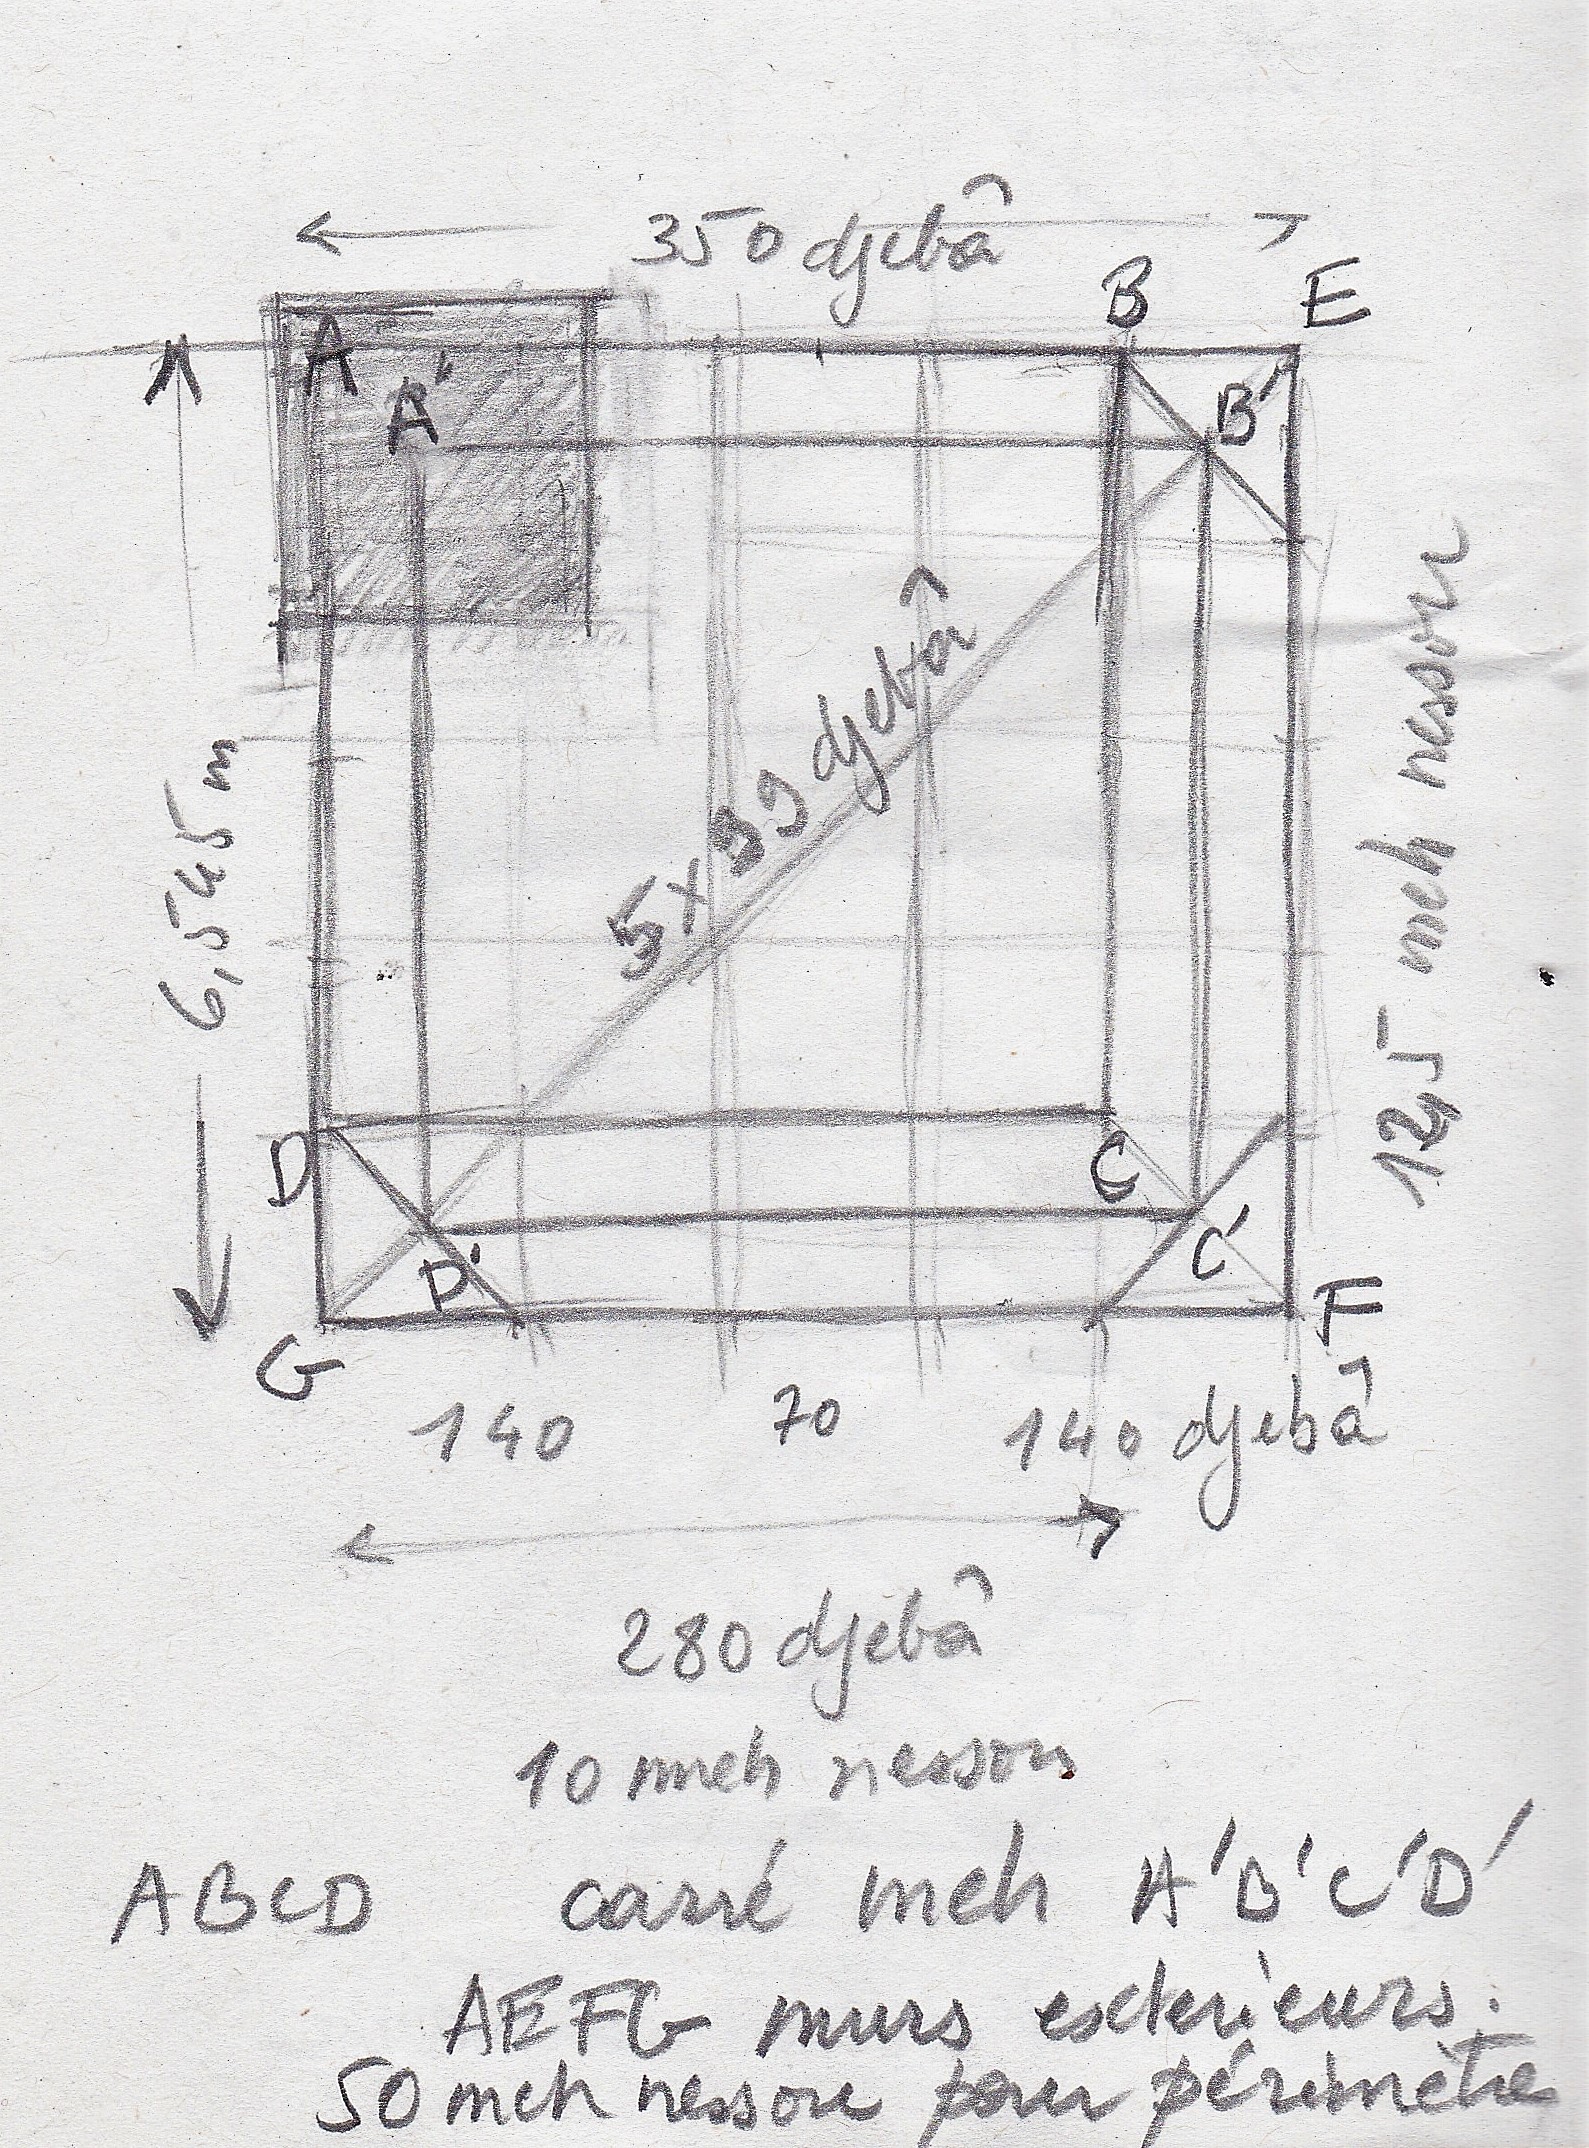 350 djebâ
B E
A
A' B'
5 x 99 djebâ
6,545 m
12,5 meh nesson
D C
D' C'
G F
140 70 140 djebâ
280 djebâ
10 meh nesson
ABCD carré meh A'B'C'D'
AEFG murs exterieurs.
50 meh nesson pour périmètre